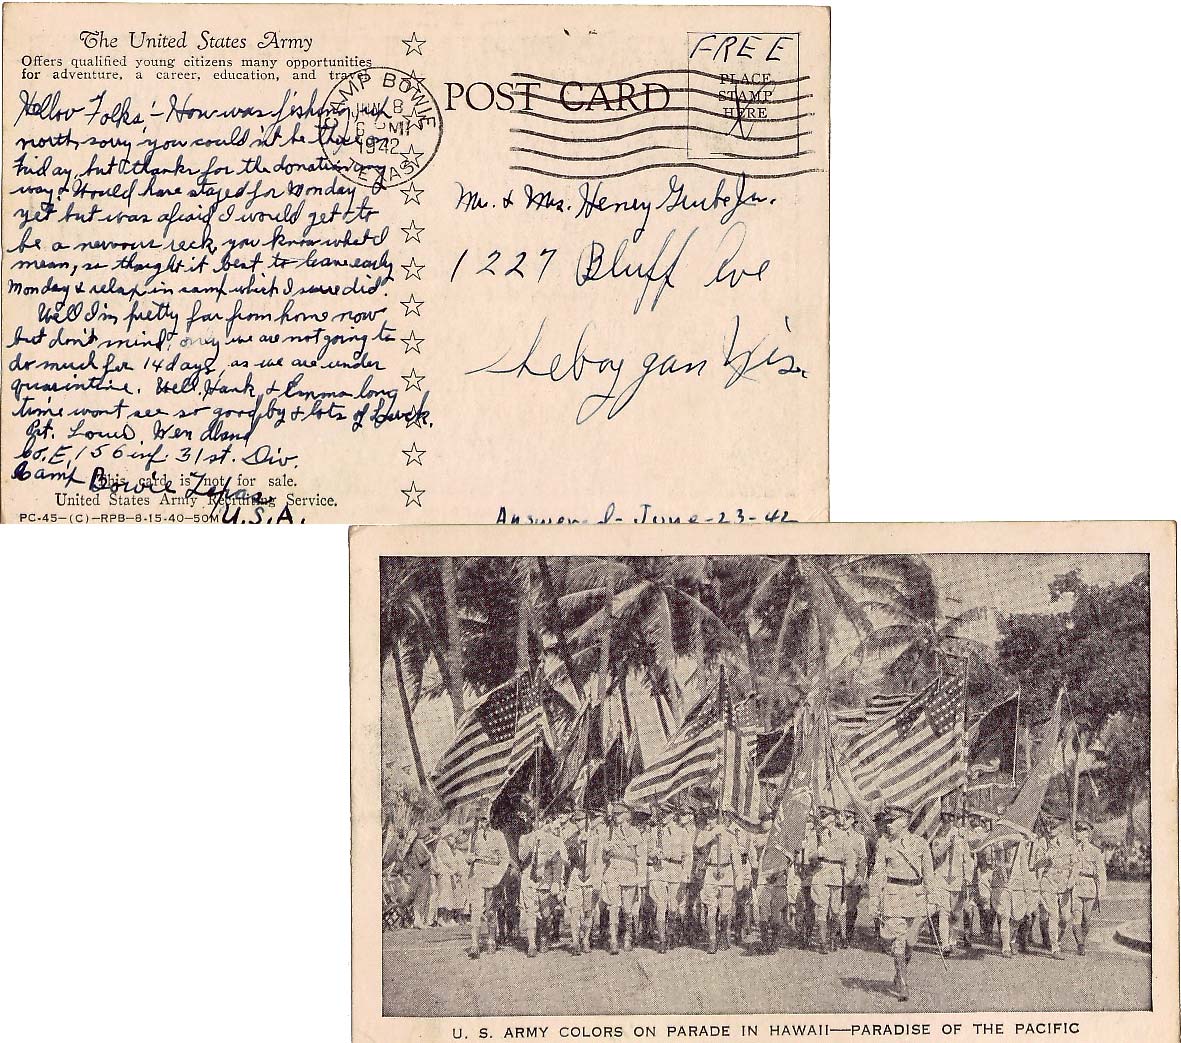 The United States Army
Offers qualified young citizens many opportunities
for adventure, a career, education, and travel
Hellow Folks! - How was fishing up
north, sorry you could'nt be there
Friday, but thanks for the donation any
way. Would have stayed for Monday
yet but was afraid I would get to
be a nervous reck, you know what I
mean, so thought it best to leave early
Monday & relax in camp which I sure did.
Well I'm pretty far from home now
but don't mind, only we are not going to
do much for 14 days, as we are under
quarintine. Well, Hank & Emma long
time wont see so good by & lots of Luck.
Pvt. Louis Wendland
Co. E, 156 inf. 31st. Div.
Camp Bowie Texas
U.S.A.
This card is not for sale.
United States Army Recruiting Service.
PC-45-(C)-RPB-8-15-40-50M
CAMP BOWIE
JUN 8
6
1942
TEXAS
POST CARD
FREE
PLACE
STAMP
HERE
Mr. & Mrs. Henry Grube Jr.
1227 Bluff Ave
Sheboygan Wis.
Answered - June-23-42
U. S. ARMY COLORS ON PARADE IN HAWAII—PARADISE OF THE PACIFIC